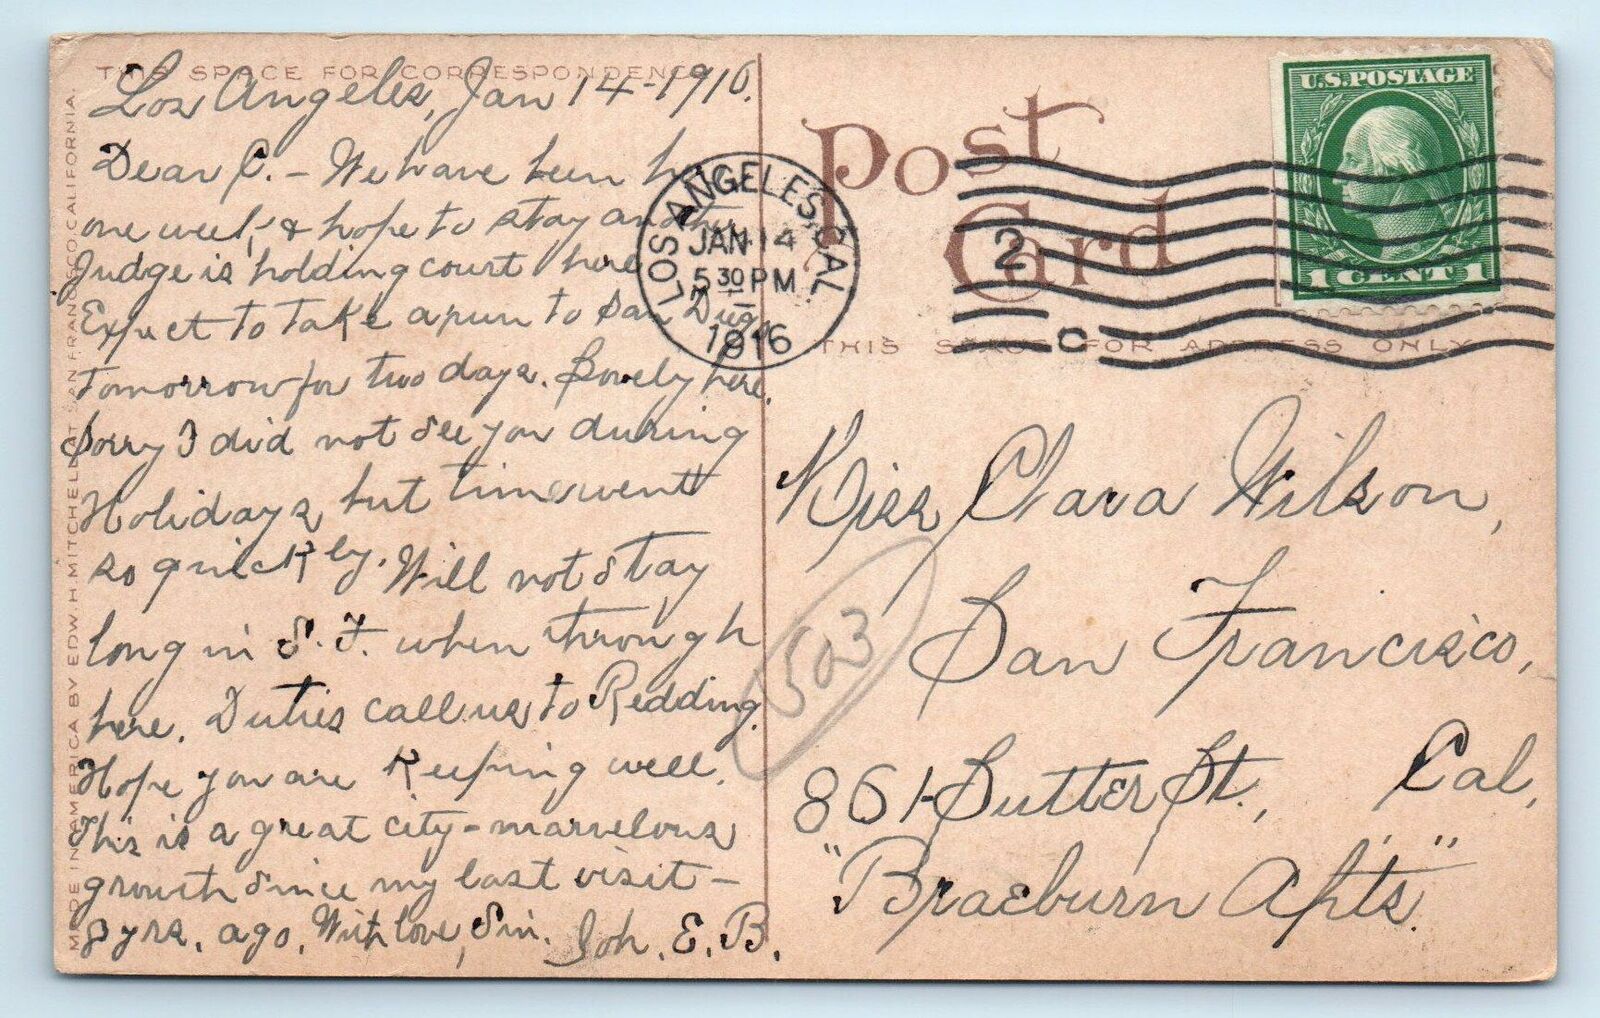 THIS SPACE FOR CORRESPONDENCE
Los Angeles, Jan 14-1916.
Dear C. - We have been here
one week, & hope to stay another.
Judge is holding court here
Expect to take a run to San Diego
tomorrow for two days. Lovely here.
Sorry I did not see you during
Holidays, but time went
so quickly. Will not stay
long in S. F. when through
here. Duties call us to Redding.
Hope you are keeping well.
This is a great city - marvelous
growth since my last visit -
yrs. ago. With love, Sin. Joh. E. B.
MADE IN AMERICA BY EDW. H. MITCHELL AT SAN FRANCISCO CALIFORNIA.
Post
Card
THIS SPACE FOR ADDRESS ONLY
LOS ANGELES, CAL.
JAN 14
5 30 PM
1916
2
C
U.S. POSTAGE
1 CENT 1
Miss Clara Wilson,
San Francisco,
861-Sutter St., Cal,
"Braeburn Apts."
503